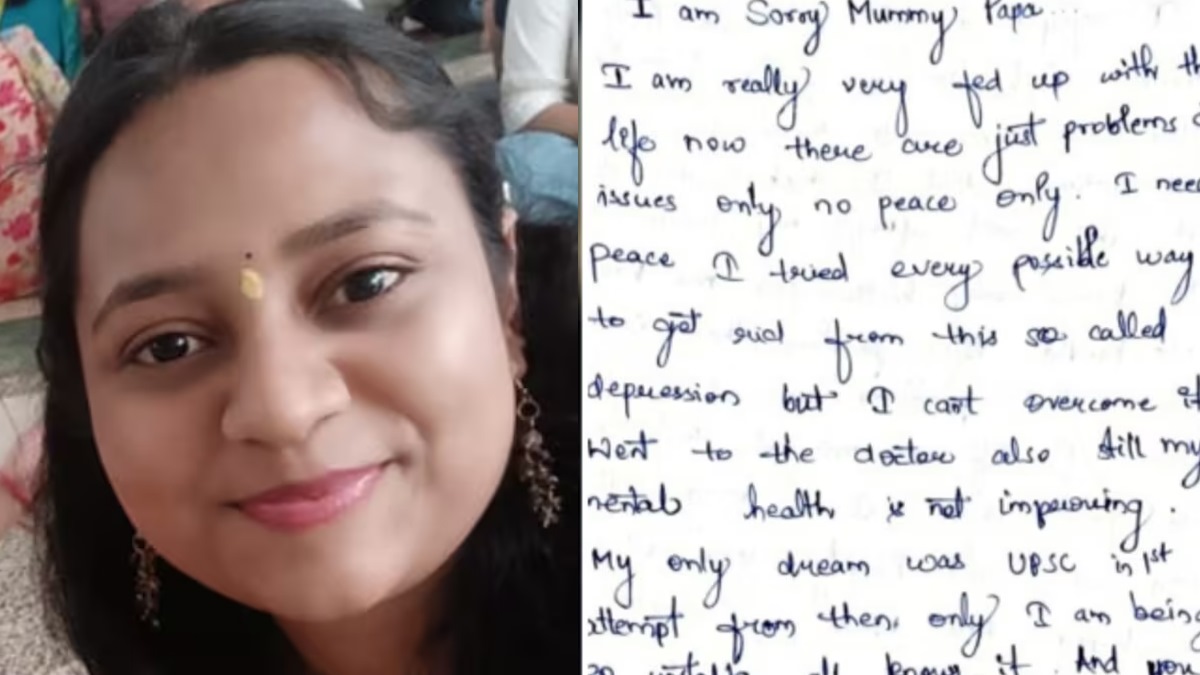 I am Sorry Mummy, Papa...
I am really very fed up with th
life now there are just problems
issues only no peace only. I nee
peace I tried every possible way
to get rid from this so called
depression but I can't overcome it
went to the doctor also still my
mental health is not improving.
My only dream was UPSC in 1st
attempt from then, only I am being
so know it. And you